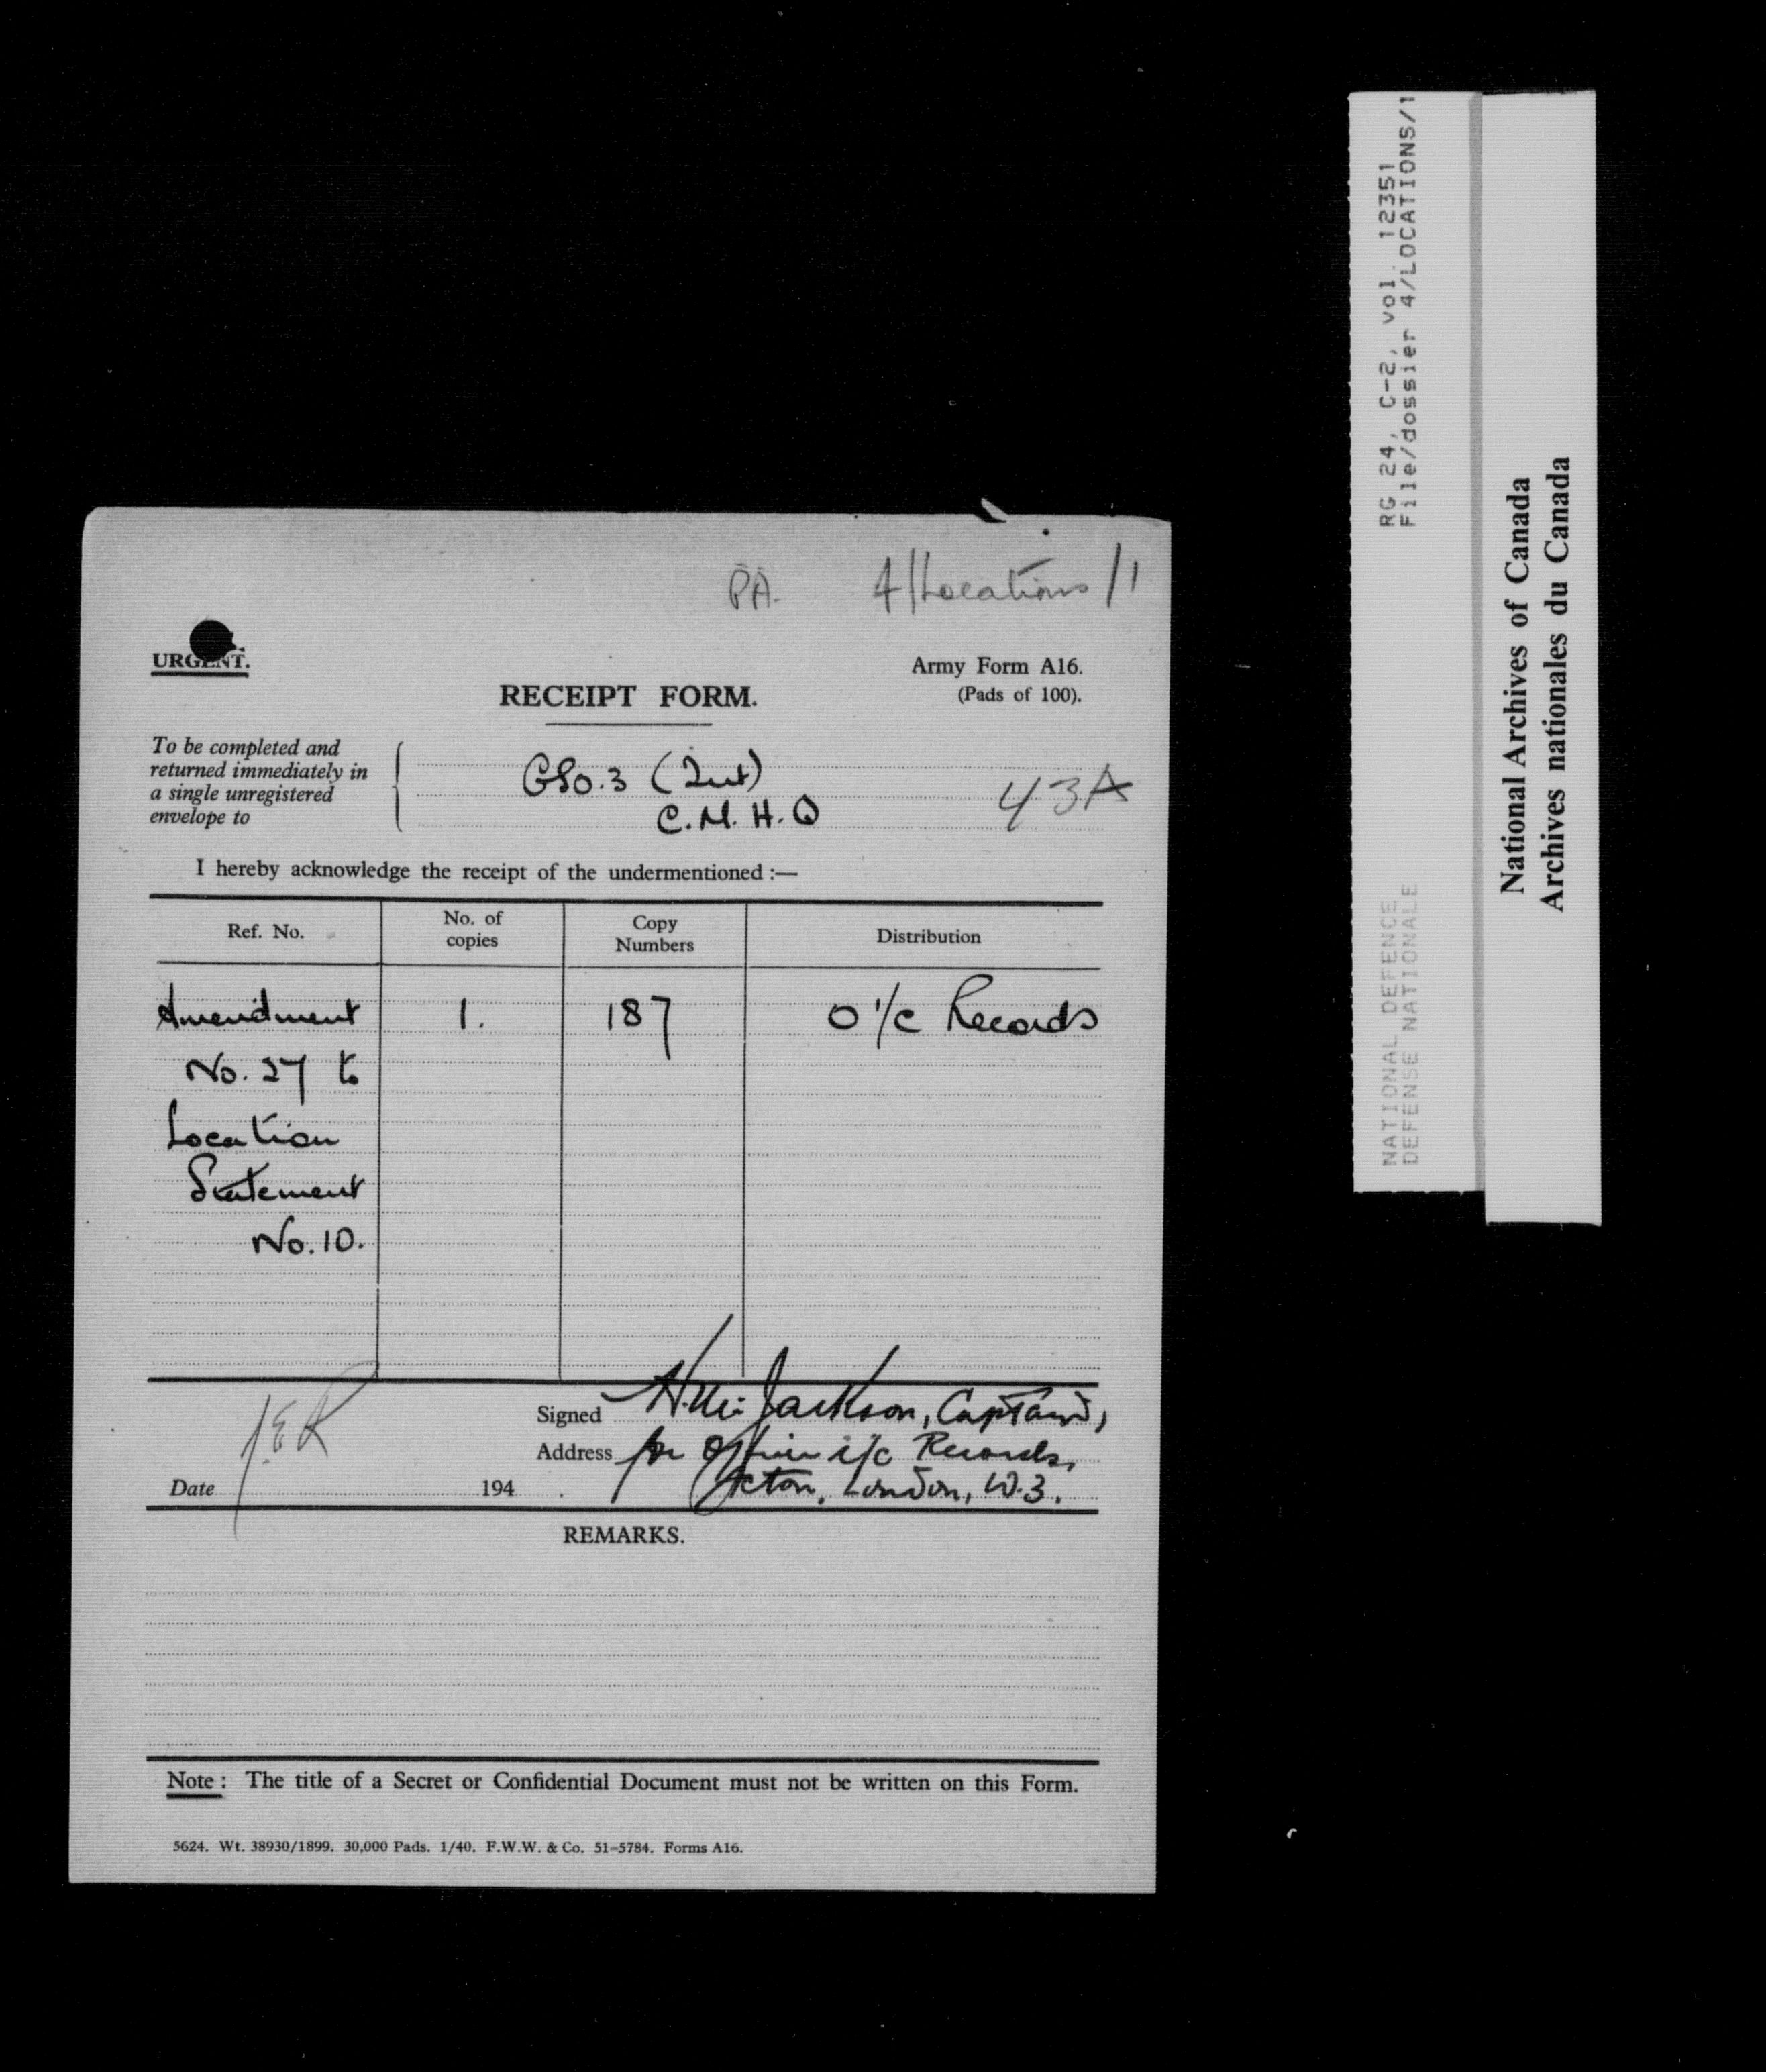 PA. 4/Locations/1
URGENT.
Army Form A16.
RECEIPT FORM.
(Pads of 100).
To be completed and
returned immediately in
a single unregistered
envelope to
GSO.3 (Int)
C.M.H.Q
43A
I hereby acknowledge the receipt of the undermentioned :—
Ref. No.
No. of
copies
Copy
Numbers
Distribution
Amendment 1. 187 O i/c Records
No. 27 to
Location
Statement
No. 10.
Signed Jackson, Captain,
Address for Officer i/c Records,
Acton, London, W.3.
Date 194 .
REMARKS.
Note : The title of a Secret or Confidential Document must not be written on this Form.
5624. Wt. 38930/1899. 30,000 Pads. 1/40. F.W.W. & Co. 51–5784. Forms A16.
RG 24, C-2, vol. 12351
File/dossier 4/LOCATIONS/1
NATIONAL DEFENCE
DEFENSE NATIONALE
National Archives of Canada
Archives nationales du Canada